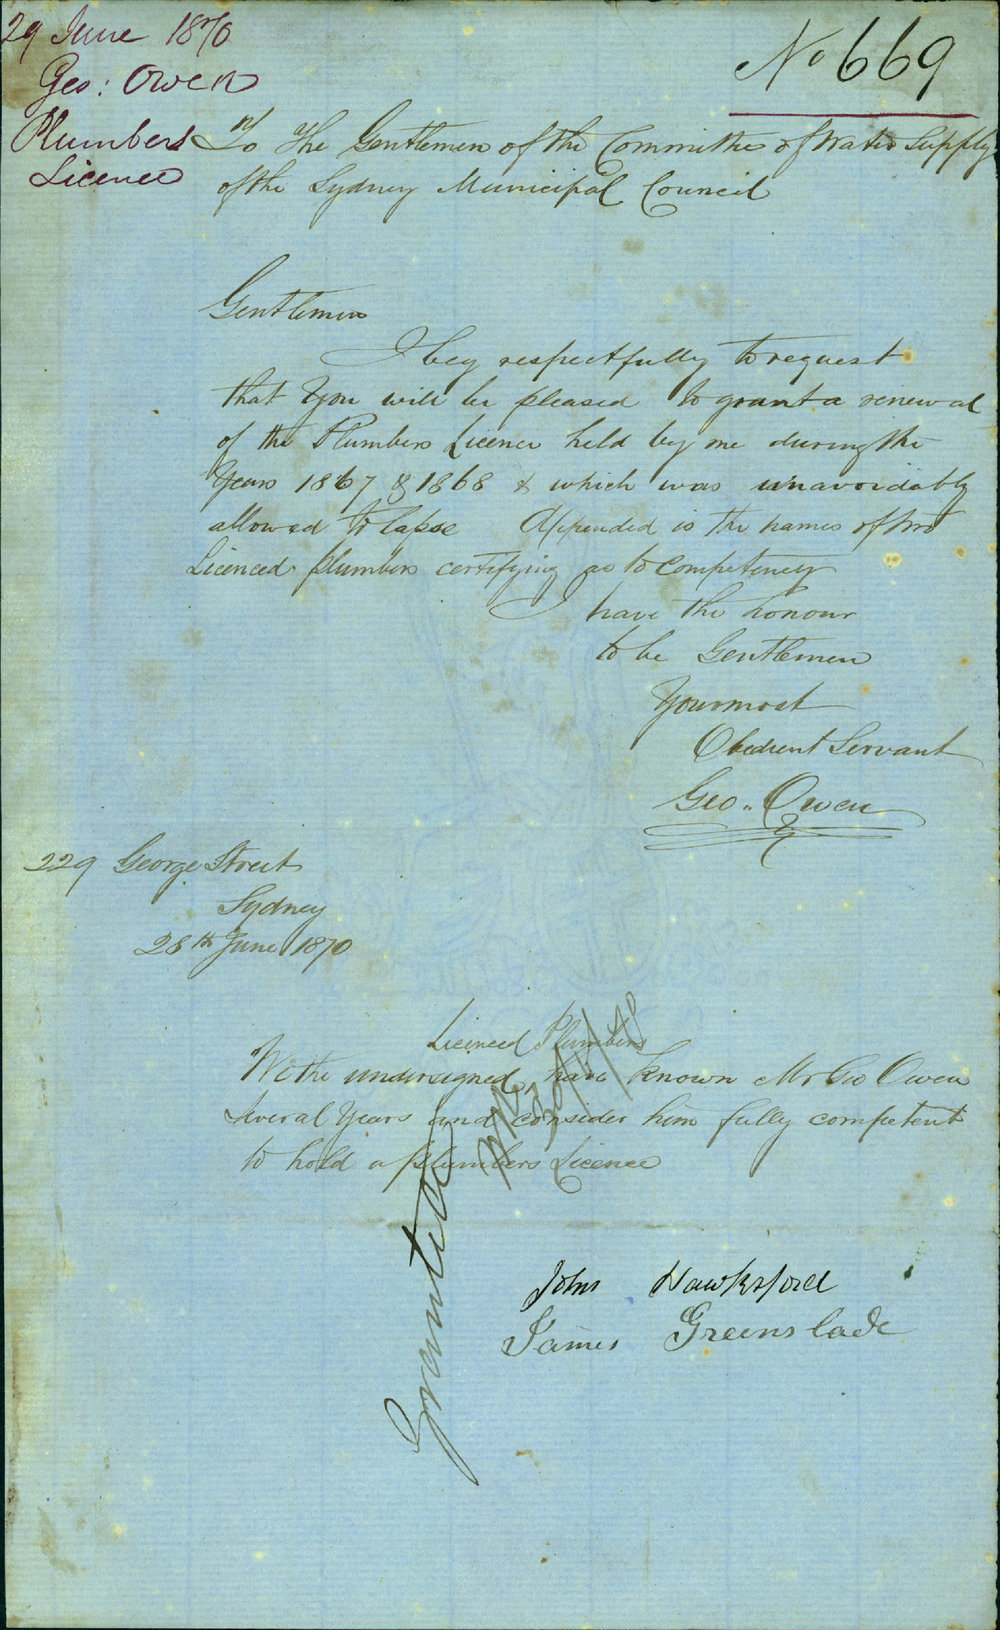 29 June 1870
Geo: Owen
Plumbers
Licence
No 669
To The Gentlemen of the Committee of Water Supply
of the Sydney Municipal Council
Gentlemen
I beg respectfully to request
that You will be pleased to grant a renewal
of the Plumbers Licence held by me during the
Years 1867 & 1868 & which was unavoidably
allowed to lapse Appended is the names of two
Licenced plumbers certifying as to competency
I have the honour
to be Gentlemen
Your most
Obedient Servant
Geo. Owen
229 George Street
Sydney
28th June 1870
Licenced Plumbers
We the undersigned, have known Mr Geo Owen
several Years and consider him fully competent
to hold a plumbers Licence
John Hawksford
James Greenslade
Granted